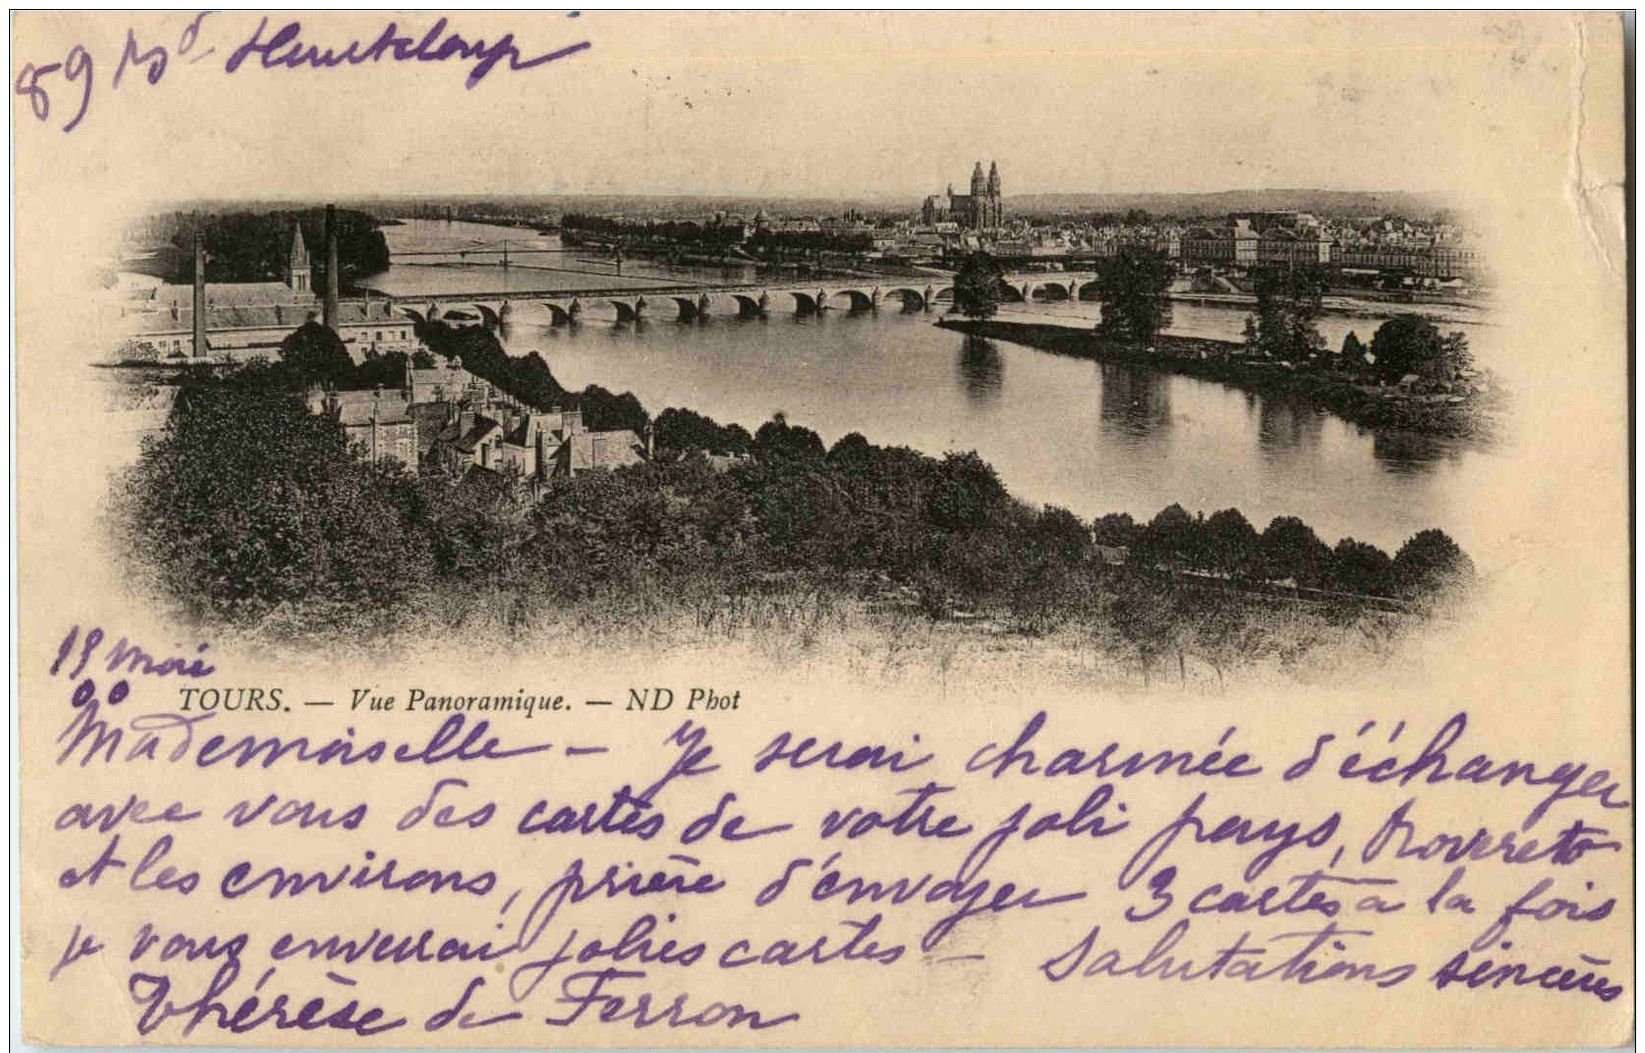 89 Bd Heurteloup
19 mai
00
TOURS. — Vue Panoramique. — ND Phot
Mademoiselle – Je serai charmée d'échanger
avec vous des cartes de votre joli pays, Rovereto
et les environs, prière d'envoyer 3 cartes à la fois
je vous enverrai jolies cartes – Salutations sincères
Thérèse de Ferron